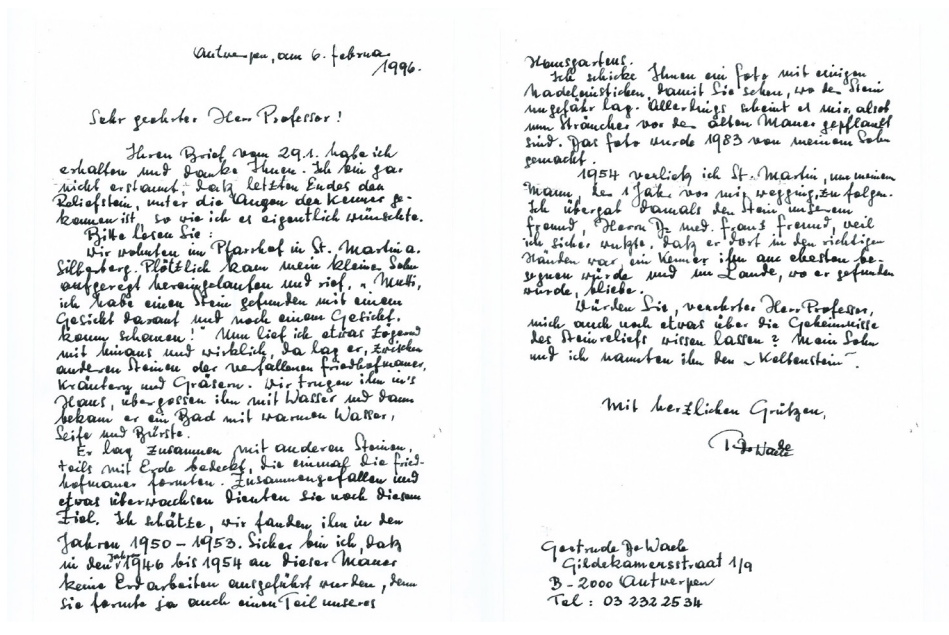 Antwerpen, am 6. Februa
1996.
Sehr geehrter Herr Professor!
Ihren Brief vom 29.1. habe ich
erhalten und danke Ihnen. Ich bin gar
nicht erstaunt, daß letzten Endes der
Reliefstein, unter die Augen der Kenner ge-
kommen ist, so wie ich es eigentlich wünschte.
Bitte lesen Sie:
Wir wohnten im Pfarrhof in St. Martin a.
Silberberg. Plötzlich kam mein kleine Sohn
aufgeregt hereingelaufen und rief, „Mutti,
ich habe einen Stein gefunden mit einem
Gesicht darauf und noch einem Gesicht,
komm schauen!" Nun lief ich etwas zögernd
mit hinaus und wirklich, da lag er, zwischen
anderen Steinen der verfallenen Friedhofmauer,
Kräutern und Gräsern. Wir trugen ihn in's
Haus, übergossen ihn mit Wasser und dann
bekam er ein Bad mit warmen Wasser,
Seife und Bürste.
Er lag zusammen mit anderen Steinen,
teils mit Erde bedeckt, die einmal die Fried-
hofmauer formten. Zusammengefallen und
etwas überwachsen dienten sie noch diesem
Ziel. Ich schätze, wir fanden ihn in den
Jahren 1950 – 1953. Sicher bin ich, daß
in den Jahren 1946 bis 1954 an dieser Mauer
keine Erdarbeiten ausgeführt wurden, denn
sie formte ja auch einen Teil unseres
Hausgartens.
Ich schicke Ihnen ein Foto mit einigen
Nadelpünktchen, damit Sie sehen, wo der Stein
ungefähr lag. Allerdings scheint es mir, als ob
nun Sträucher vor der alten Mauer gepflanzt
sind. Das Foto wurde 1983 von meinem Sohn
gemacht.
1954 verließ ich St. Martin, um meinem
Mann, der 1 Jahr vor mir wegging, zu folgen.
Ich übergab damals den Stein unserem
Freund, Herrn Dr. med. Franz Freund, weil
ich sicher wußte, daß er dort in den richtigen
Händen war, ein Kenner ihm am ehesten be-
gegnen würde und im Lande, wo er gefunden
würde, bliebe.
Würden Sie, verehrter Herr Professor,
mich auch noch etwas über die Geheimnisse
des Steinreliefs wissen lassen? Mein Sohn
und ich nannten ihn den „Keltenstein".
Mit herzlichen Grüßen,
De Wade
Gertrude De Wade
Gildekamersstraat 1/9
B - 2000 Antwerpen
Tel: 03 232 25 34